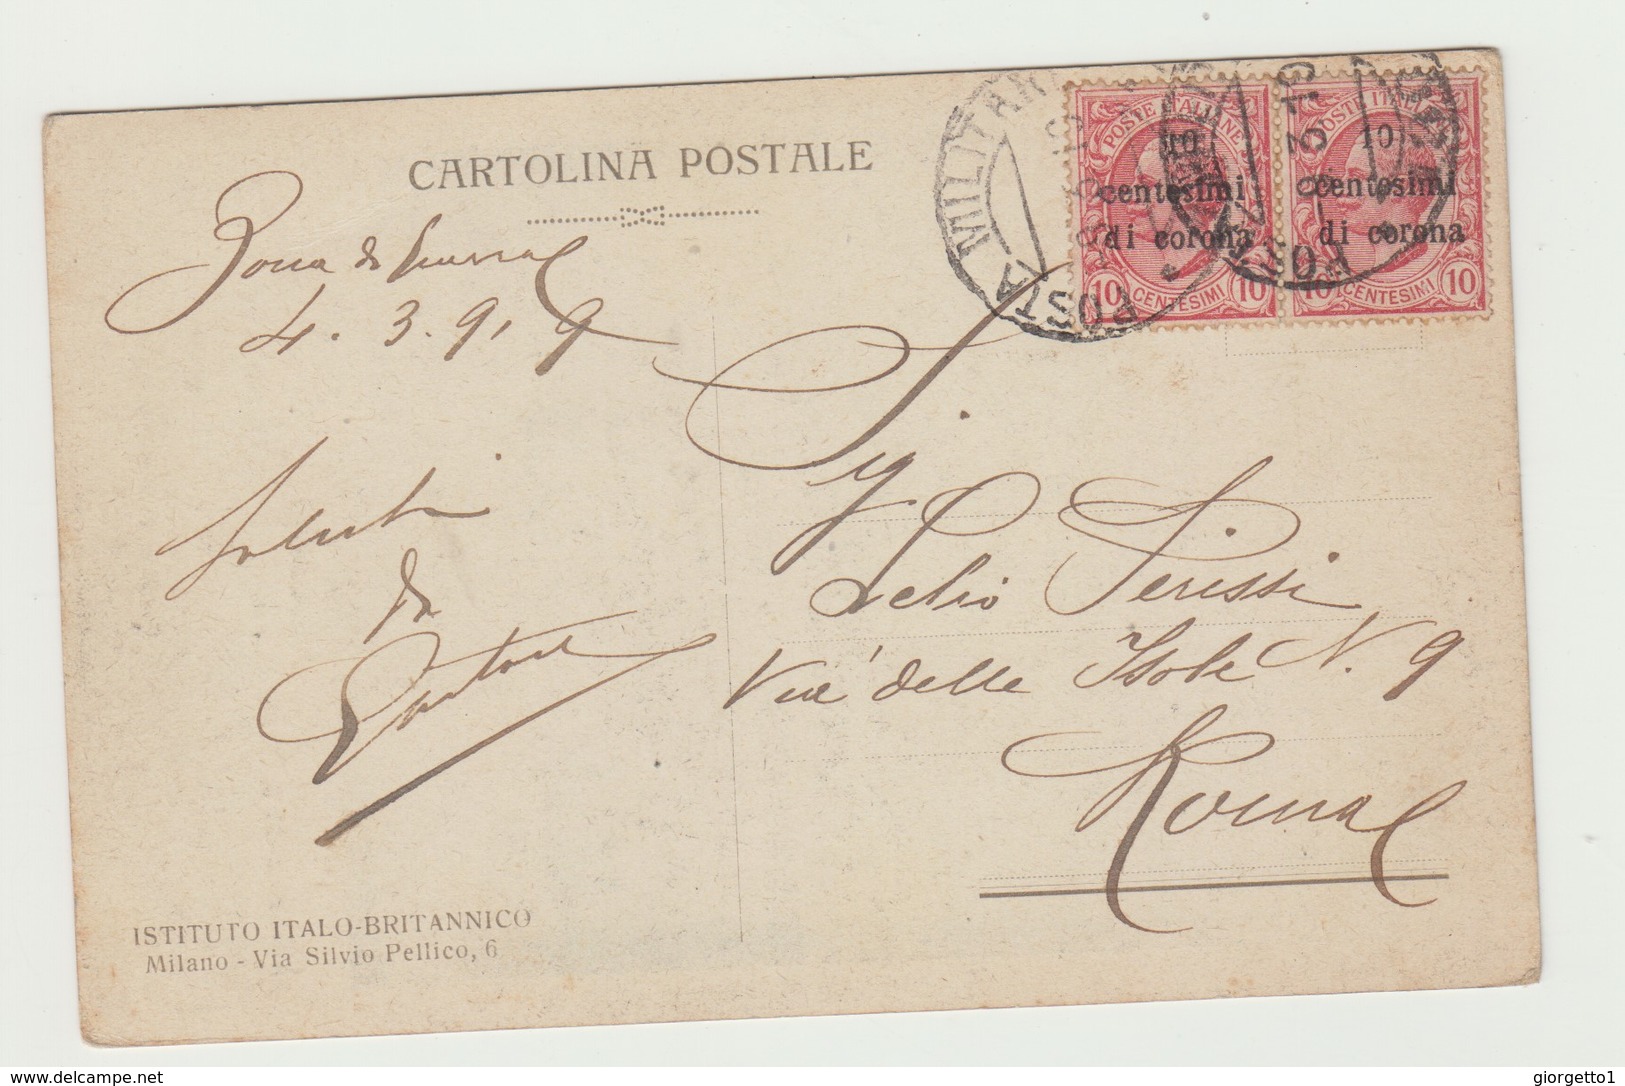 CARTOLINA POSTALE
Zona di Guerra
4.3.919
Saluti
da
Sig
Lelio Perissi
Via delle Isole N. 9
Roma
POSTA MILITARE
POSTE ITALIANE
10
centesimi
di corona
10 CENTESIMI 10
POSTE ITALIANE
10
centesimi
di corona
10 CENTESIMI 10
POSTA
ISTITUTO ITALO-BRITANNICO
Milano - Via Silvio Pellico, 6
delcampe.net
giorgetto1